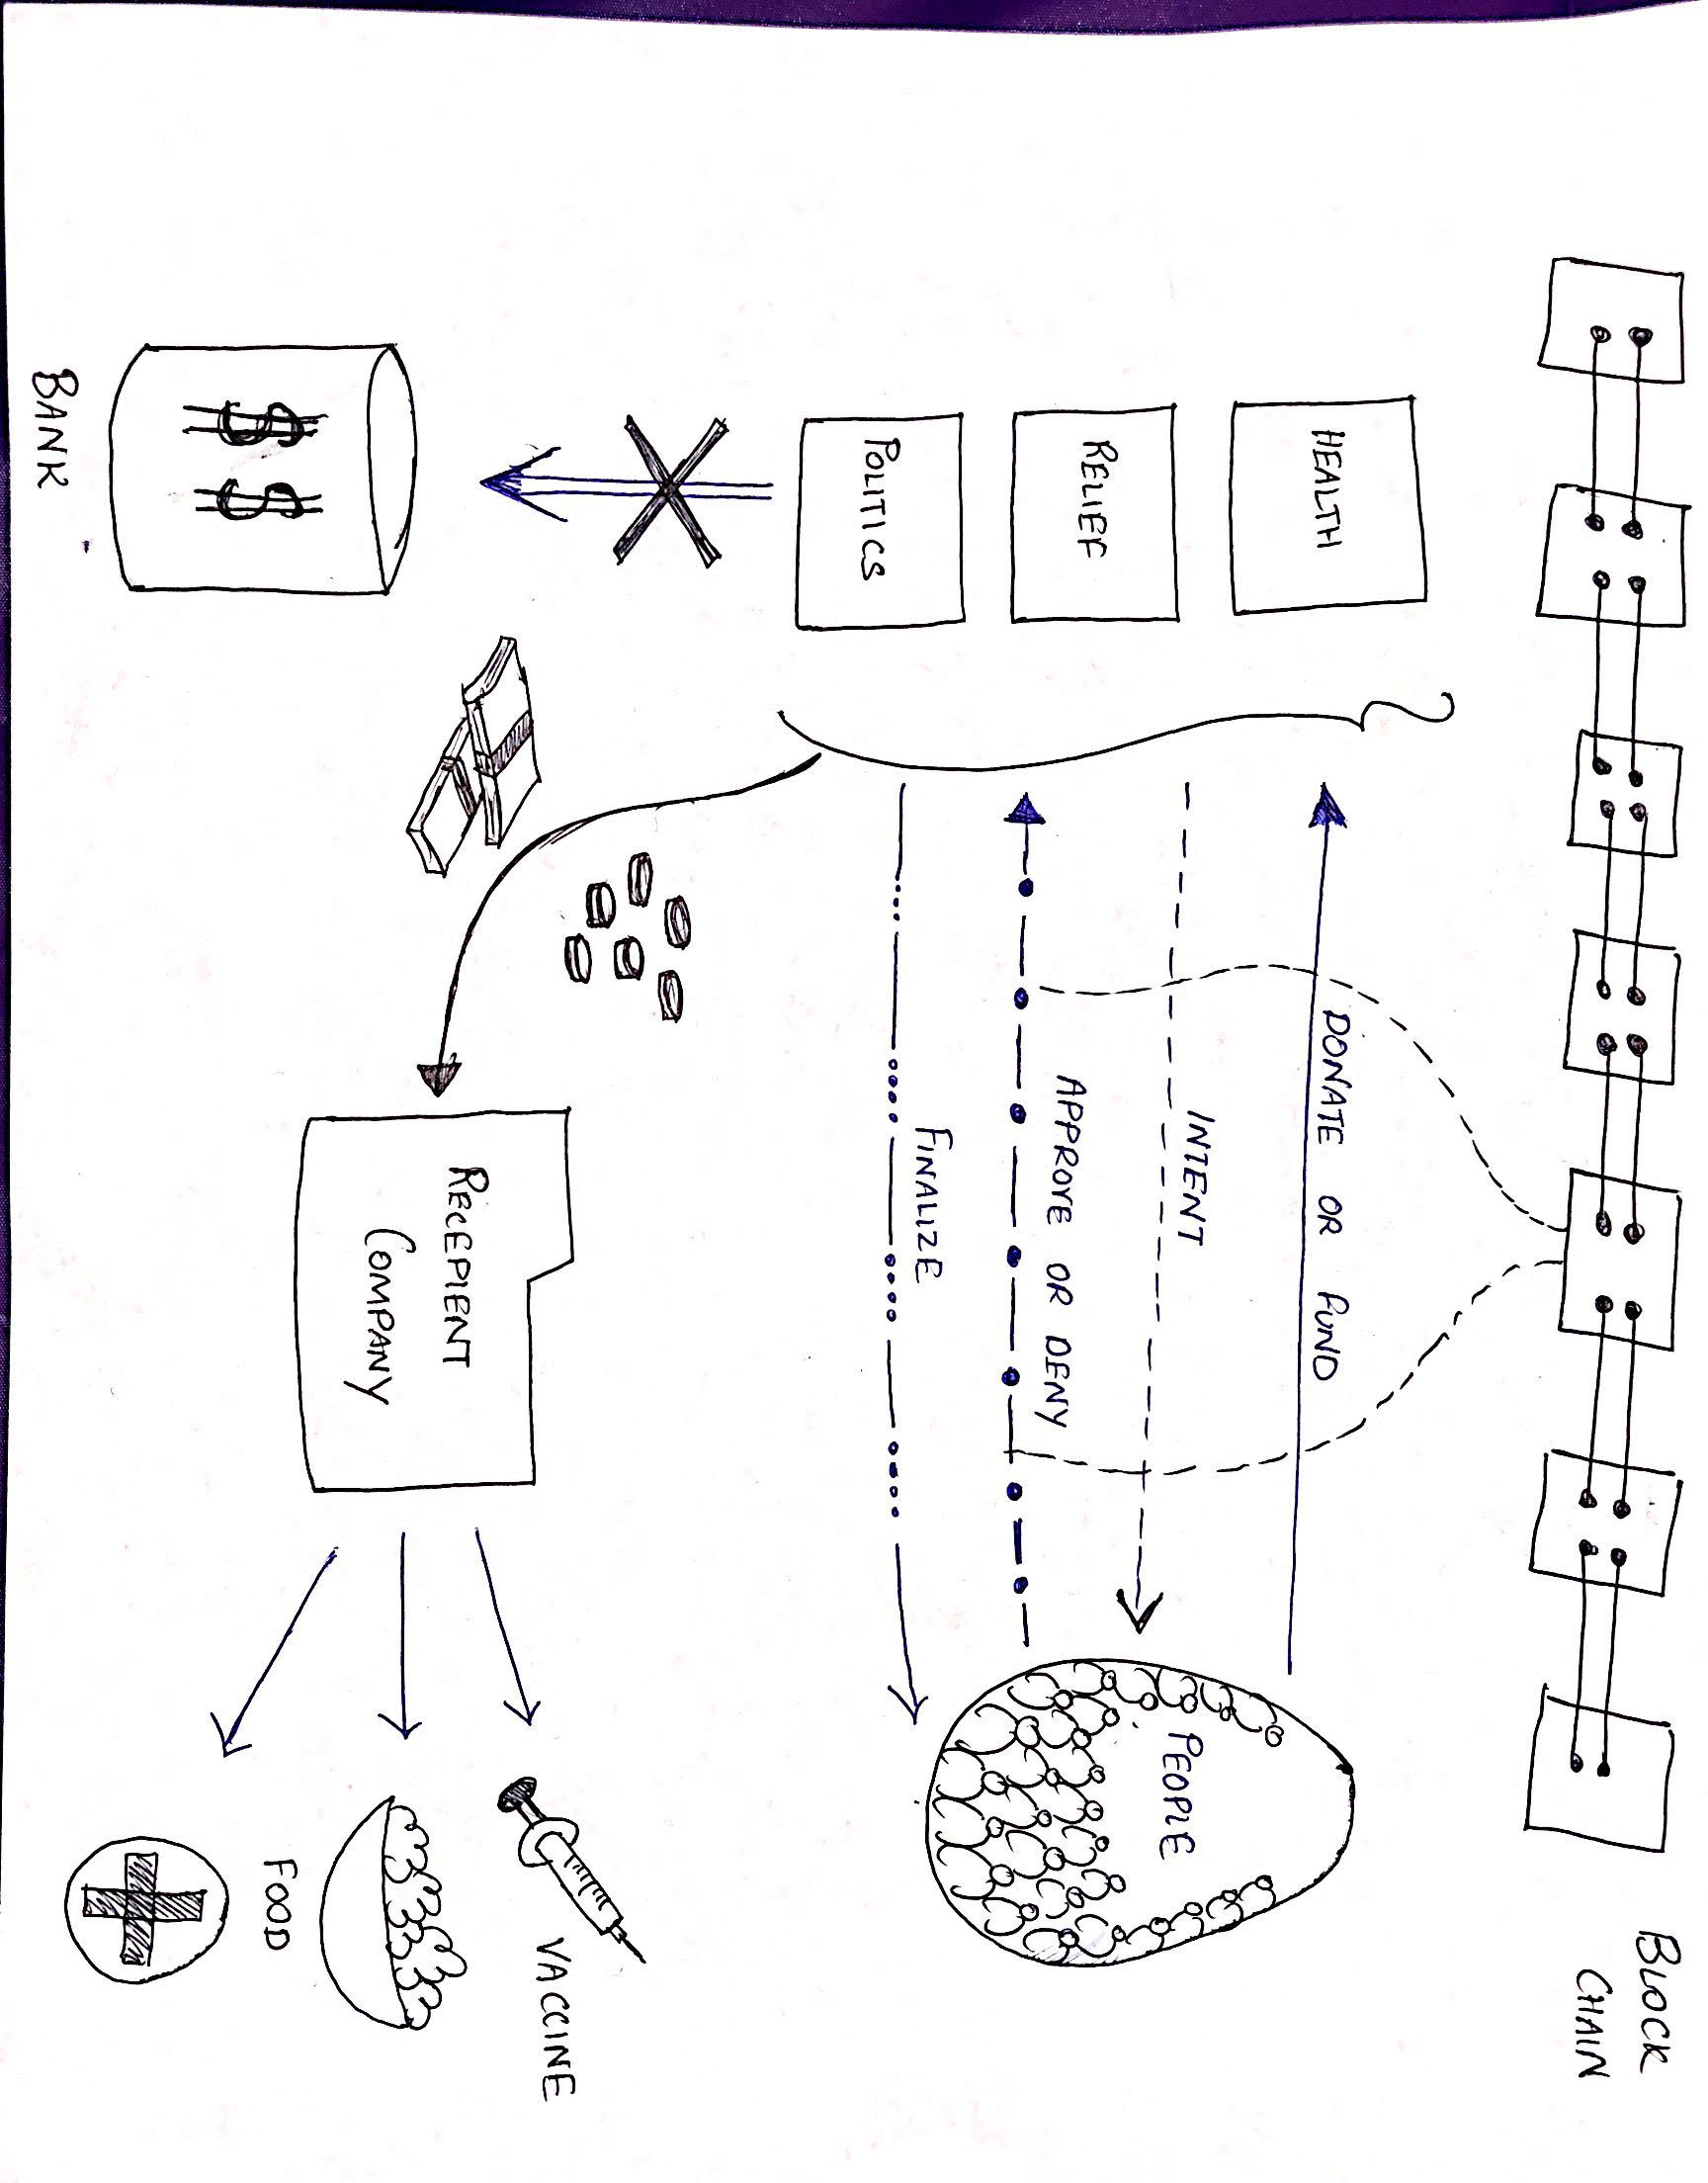 BLOCK
CHAIN
HEALTH
RELIEF
POLITICS
DONATE OR FUND
INTENT
APPROVE OR DENY
FINALIZE
PEOPLE
$ $
BANK
RECEPIENT
COMPANY
VACCINE
FOOD